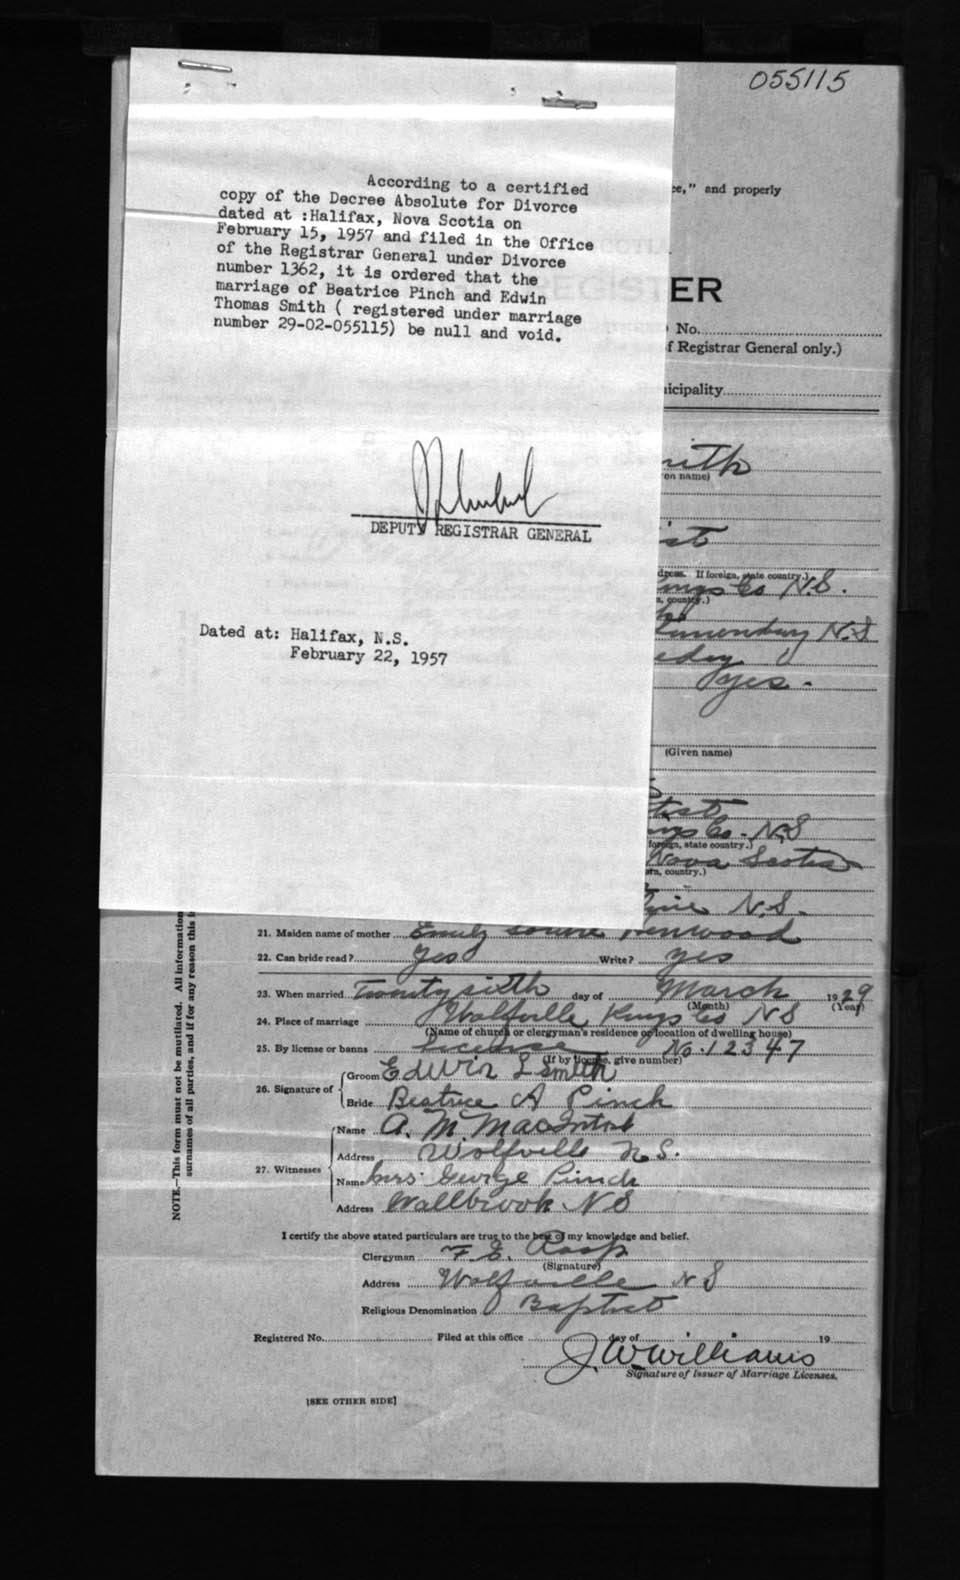 055115
According to a certified
copy of the Decree Absolute for Divorce
dated at :Halifax, Nova Scotia on
February 15, 1957 and filed in the Office
of the Registrar General under Divorce
number 1362, it is ordered that the
marriage of Beatrice Pinch and Edwin
Thomas Smith ( registered under marriage
number 29-02-055115) be null and void.
DEPUTY REGISTRAR GENERAL
Dated at: Halifax, N.S.
February 22, 1957
ce," and properly
ER
No.
f Registrar General only.)
icipality
ith
en name)
ist
dress. If foreign, state country.)
ings Co N.S.
s, country.)
N.S
yes.
(Given name)
tist
ings Co. N.S
foreign, state country.)
Nova Scotia
rn, country.)
N.S.
21. Maiden name of mother Emily Louise Kenwood
22. Can bride read? Yes Write? yes
23. When married Twenty sixth day of March 1929
(Month) (Year)
24. Place of marriage Wolfville Kings Co NS
(Name of church or clergyman's residence or location of dwelling house)
25. By license or banns License No. 12347
(If by license, give number)
26. Signature of Groom Edwin T Smith
Bride Beatrice A Pinch
27. Witnesses Name A. M MacIntosh
Address Wolfville N.S.
Name Mrs George Pinch
Address Wallbrook N S
I certify the above stated particulars are true to the best of my knowledge and belief.
Clergyman F. E. Roop
(Signature)
Address Wolfville N S
Religious Denomination Baptist
Registered No. Filed at this office day of 19
J. W. Williams
Signature of Issuer of Marriage Licenses.
[SEE OTHER SIDE]
NOTE.—This form must not be mutilated. All information
surnames of all parties, and if for any reason this